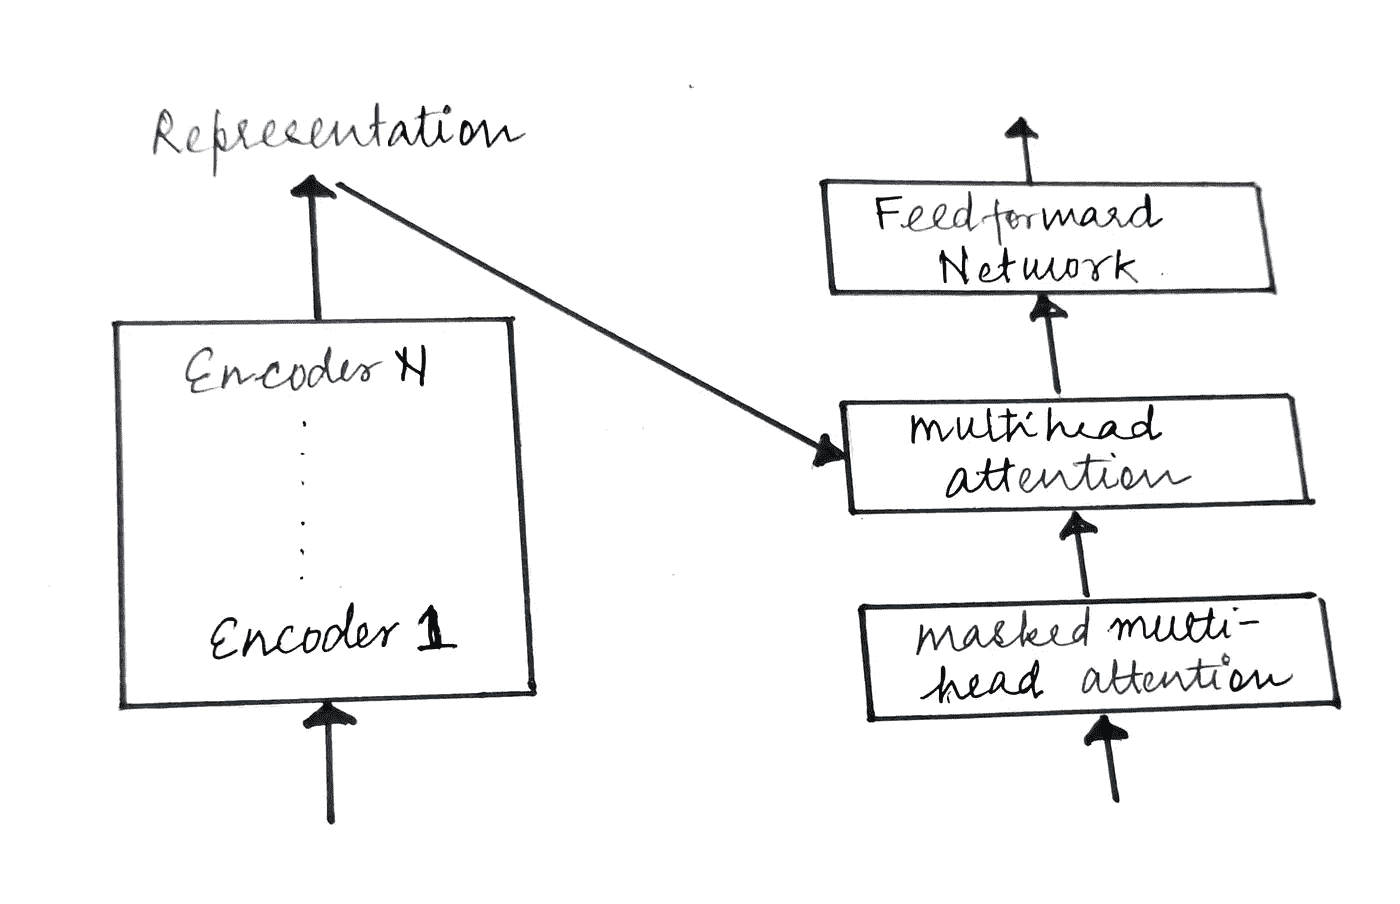 Representation
Encoder N
Encoder 1
Feedforward
Network
multihead
attention
masked multi-
head attention